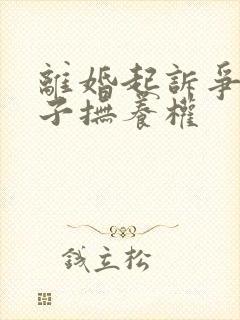 離婚起訴爭
子撫養權
錢立松